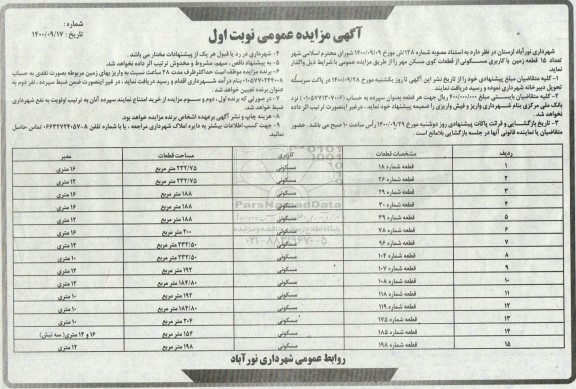 شماره :
تاریخ : ۱۴۰۰/۰۹/۱۷
آگهی مزایده عمومی نوبت اول
شهرداری نورآباد لرستان در نظر دارد به استناد مصوبه شماره ۱۲۸/ش مورخ ۱۴۰۰/۰۹/۰۹ شورای محترم اسلامی شهر
تعداد ۱۵ قطعه زمین با کاربری مسکونی از قطعات کوی مسکن مهر را از طریق مزایده عمومی با شرایط ذیل واگذار
نماید.
۱- کلیه متقاضیان مبلغ پیشنهادی خود را از تاریخ نشر این آگهی تا روز یکشنبه مورخ ۱۴۰۰/۰۹/۲۸ در پاکت سربسته
تحویل دبیرخانه شهرداری نموده و رسید دریافت نمایند.
۲- کلیه متقاضیان بایستی مبلغ ۴۰۰/۰۰۰/۰۰۰ ریال جهت هر قطعه بعنوان سپرده به حساب ۰۱۰۵۷۷۱۳۷۰۰۶ نزد
بانک ملی مرکزی بنام شهرداری واریز و فیش واریزی را ضمیمه پیشنهاد خود نماید. در غیر اینصورت ترتیب اثر داده
نخواهد شد.
۳- تاریخ بازگشایی و قرائت پاکات پیشنهادی روز دوشنبه مورخ ۱۴۰۰/۰۹/۲۹ رأس ساعت ۱۰ صبح می باشد. حضور
متقاضیان یا نماینده قانونی آنها در جلسه بازگشایی بلامانع است.
۴- شهرداری در رد یا قبول هر یک از پیشنهادات مختار می باشد.
۵- به پیشنهاد ناقص، مبهم، مشروط و مخدوش ترتیب اثر داده نخواهد شد.
۶- برنده مزایده موظف است حداکثر ظرف مدت ۴۸ ساعت نسبت به واریز بهای زمین مربوطه بصورت نقدی به حساب
بنام درآمد شهرداری اقدام و رسید دریافت نماید، در غیر اینصورت ضمن ضبط سپرده، نفر دوم به
عنوان برنده تعیین خواهد شد.
۷- در صورتی که برنده اول، دوم و سوم مزایده از خرید امتناع نمایند سپرده آنان به ترتیب اولویت به نفع شهرداری
ضبط خواهد شد.
۸- هزینه چاپ و نشر آگهی برعهده اشخاص برنده مزایده خواهد بود.
۹- جهت کسب اطلاعات بیشتر به دایره املاک شهرداری مراجعه ، یا با شماره تلفن ۸-۰۶۶۳۲۷۲۴۰۵۷ تماس حاصل
نمائید.
ردیف مشخصات قطعات کاربری مساحت قطعات معبر
۱ قطعه شماره ۱۸ مسکونی ۲۳۲/۷۵ متر مربع ۱۶ متری
۲ قطعه شماره ۲۶ مسکونی ۲۳۲/۷۵ متر مربع ۱۲ متری
۳ قطعه شماره ۲۹ مسکونی ۱۸۸ متر مربع ۱۶ متری
۴ قطعه شماره ۳۰ مسکونی ۱۸۸ متر مربع ۱۶ متری
۵ قطعه شماره ۳۹ مسکونی ۱۸۸ متر مربع ۱۲ متری
۶ قطعه شماره ۷۸ مسکونی ۲۰۰ متر مربع ۱۶ متری
۷ قطعه شماره ۹۶ مسکونی ۲۳۲/۵۰ متر مربع ۱۲ متری
۸ قطعه شماره ۱۰۴ مسکونی ۲۳۲/۵۰ متر مربع ۱۰ متری
۹ قطعه شماره ۱۰۷ مسکونی ۱۹۲ متر مربع ۱۰ متری
۱۰ قطعه شماره ۱۰۸ مسکونی ۱۸۴/۸۰ متر مربع ۱۲ متری
۱۱ قطعه شماره ۱۱۸ مسکونی ۱۹۲ متر مربع ۱۰ متری
۱۲ قطعه شماره ۱۱۹ مسکونی ۱۸۴/۸۰ متر مربع ۱۰ متری
۱۳ قطعه شماره ۱۷۵ مسکونی ۲۰۴ متر مربع ۱۰ متری
۱۴ قطعه شماره ۱۸۵ مسکونی ۱۵۴ متر مربع ۱۶ و ۱۲ متری( سه نبش)
۱۵ قطعه شماره ۱۹۸ مسکونی ۱۹۸ متر مربع ۱۲ متری
روابط عمومی شهرداری نورآباد
ParsNamadData
۰۲۱-۸۸۳۴۹۶۷۰-۵